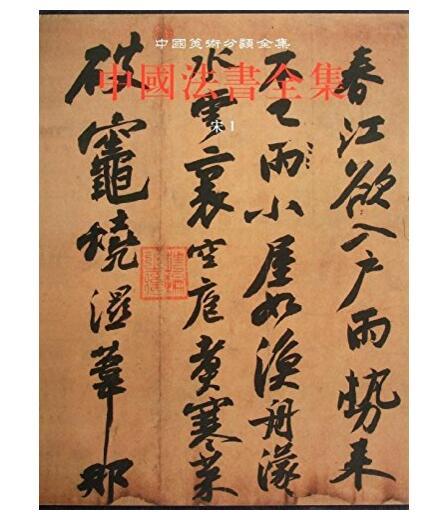 中國美術分類全集
中國法書全集
宋1
春江欲入戶雨勢来
不已雨小屋如漁舟濛
水雲裏空庖煮寒菜
破竈燒濕葦那